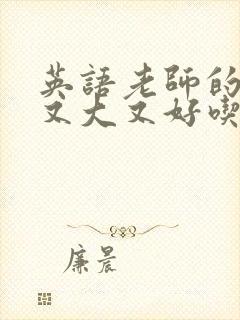 英語老師的
又大又好喫
廉晨